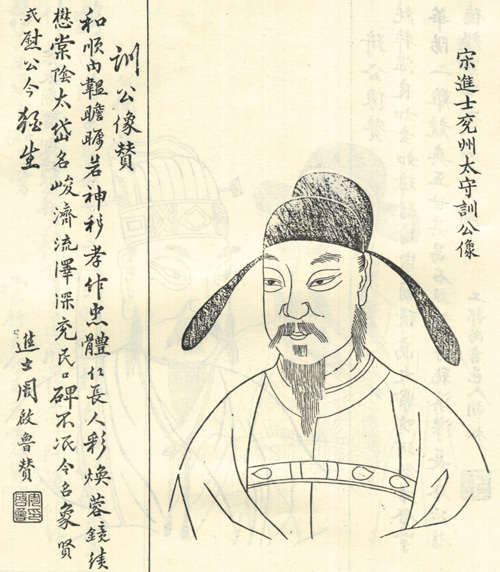 宋進士兖州太守訓公像
訓公像贊
和順內韞瞻矚若神移孝作忠體仁長人彩煥蓉鏡績
懋棠陰太岱名峻濟流澤深兖民口碑不泯令名象賢
式慰公今猶生
進士周啟魯贊